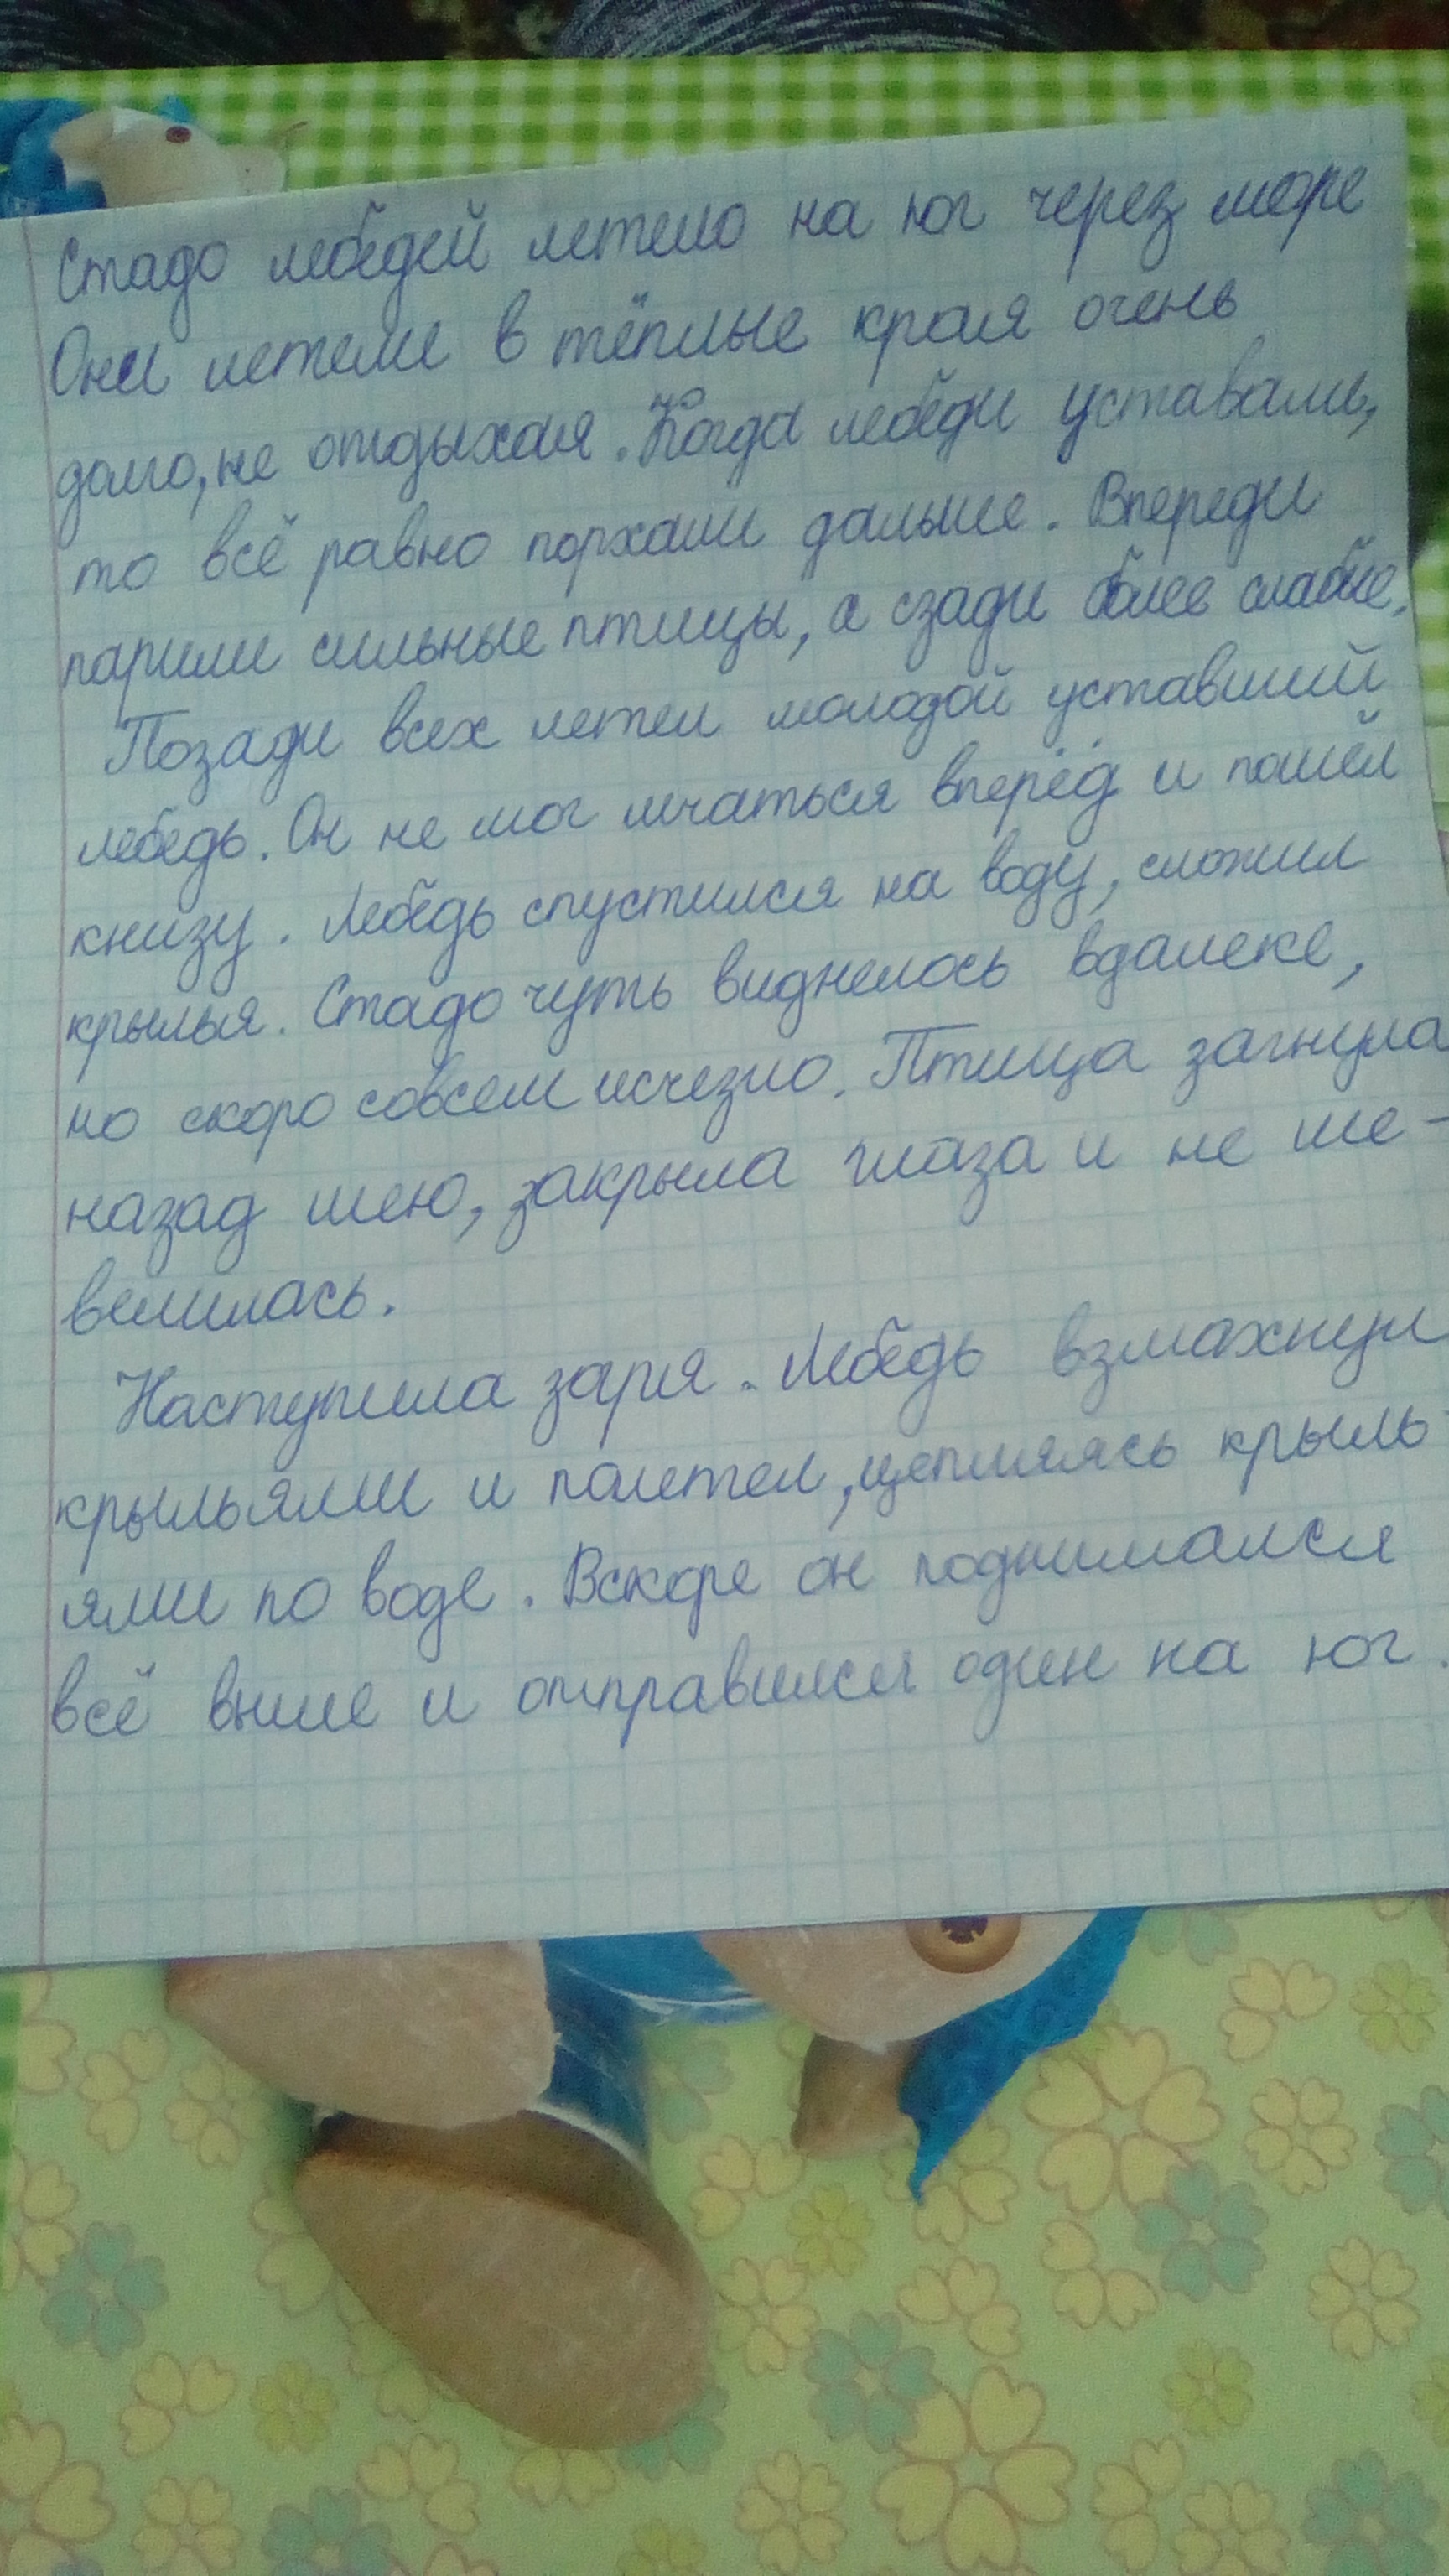 Стадо лебедей летело на юг через море
Они летели в тёплые края очень
долго, не отдыхая. Когда лебеди уставали,
то всё равно порхали дальше. Впереди
парили сильные птицы, а сзади более слабые.
Позади всех летел молодой уставший
лебедь. Он не мог мчаться вперёд и пошёл
книзу. Лебедь спустился на воду, сложил
крылья. Стадо чуть виднелось вдалеке,
но скоро совсем исчезло. Птица загнула
назад шею, закрыла глаза и не ше-
велилась.
Наступила заря. Лебедь взмахнул
крыльями и полетел, цепляясь крыль-
ями по воде. Вскоре он поднимался
всё выше и отправился один на юг.